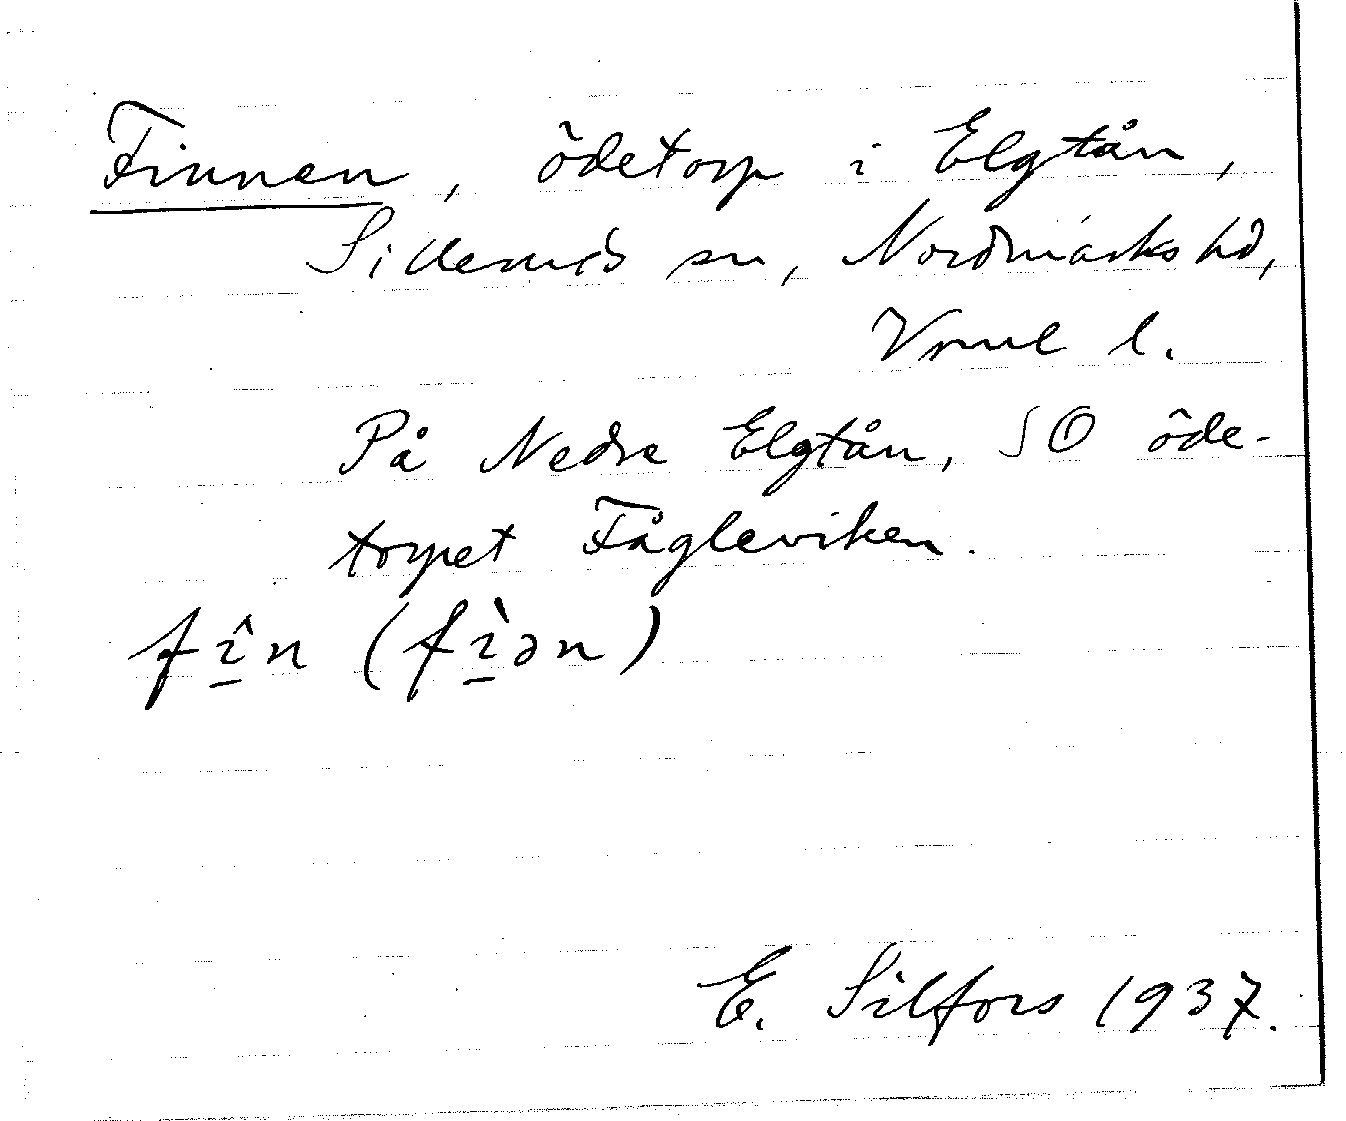 Finnen, ödetorp i Elgtån,
Silleruds sn, Nordmarks hd,
Vrml l.
På Nedre Elgtån, SO öde-
torpet Fågleviken.
fî̱n (fì̱ən)
E. Silfors 1937.